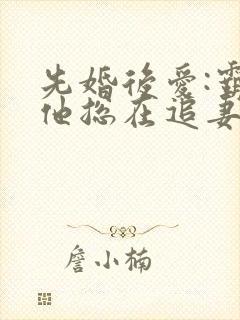 先婚後愛:
他捴在追妻
詹小楠